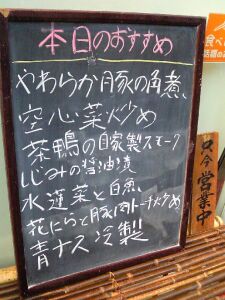 本日のおすすめ
やわらか豚の角煮
空心菜炒め
茶鴨の自家製スモーク
しじみの醤油漬
水蓮菜と白魚
花にらと豚肉トーチ炒め
青ナス冷製
食べ
話題の
只今営業中